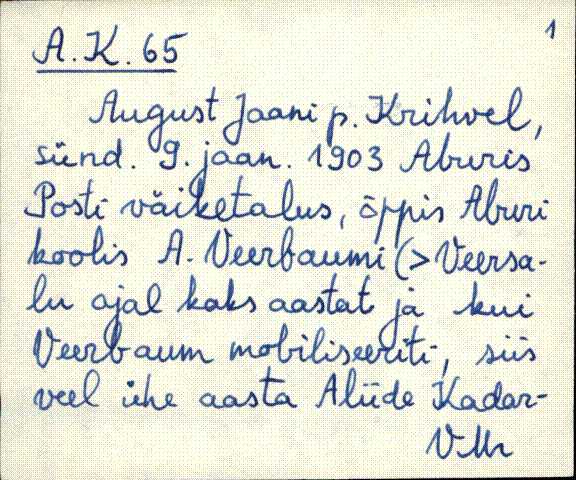 1
A. K. 65
August Jaani p. Krihvel,
sünd. 9. jaan. 1903 Aburis
Posti väiketalus, õppis Aburi
koolis A. Veerbaumi (> Veersa-
lu ajal kaks aastat ja kui
Veerbaum mobiliseeriti, siis
veel ühe aasta Aliide Kadar-
VMr